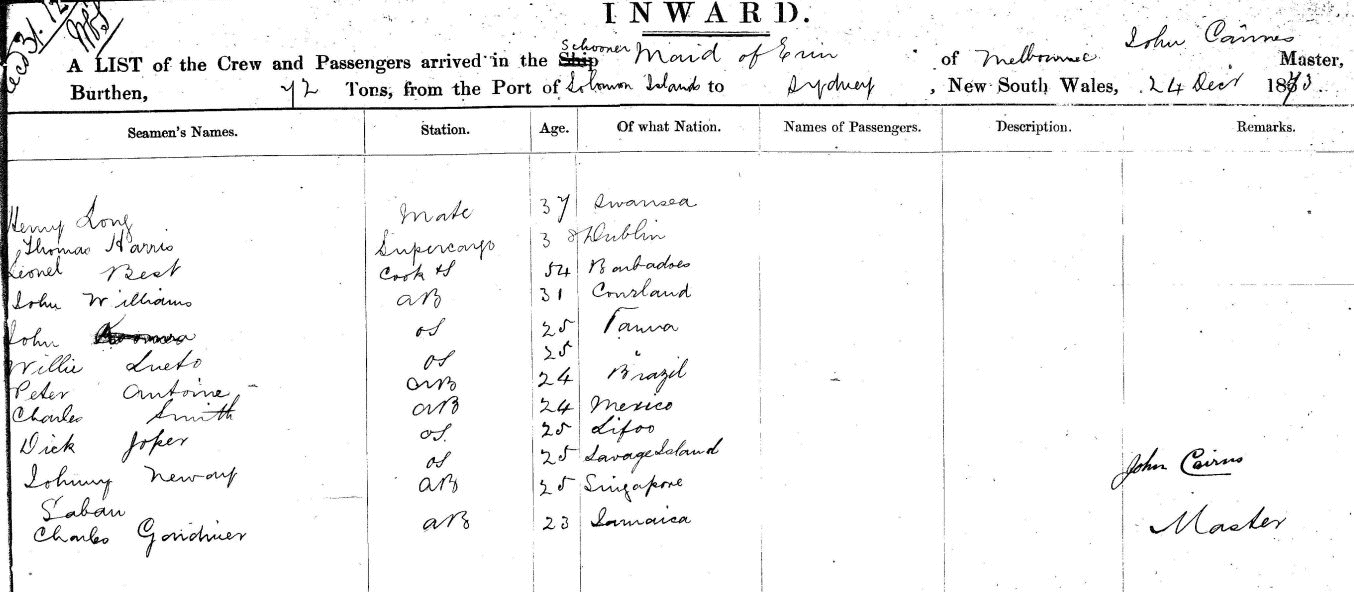 INWARD.
Schooner
A LIST of the Crew and Passengers arrived in the Ship Maid of Erin of Melbourne John Cairnes Master,
Burthen, 72 Tons, from the Port of Solomon Islands to Sydney, New South Wales, 24 Decr 1873.
Seamen's Names. Station. Age. Of what Nation. Names of Passengers. Description. Remarks.
Henry Long Mate 37 Swansea
Thomas Harris Supercargo 38 Dublin
Lionel Best Cook & S 54 Barbadoes
John Williams AB 31 Courland
John OS 25 Tanna
Willie Lueto OS 25 "
Peter Antoine AB 24 Brazil
Charles Smith AB 24 Mexico
Dick Joker OS 25 Lifoo
Johnny OS 25 Savage Island
Saban AB 25 Singapore
Charles AB 23 Jamaica
John Cairns
Master